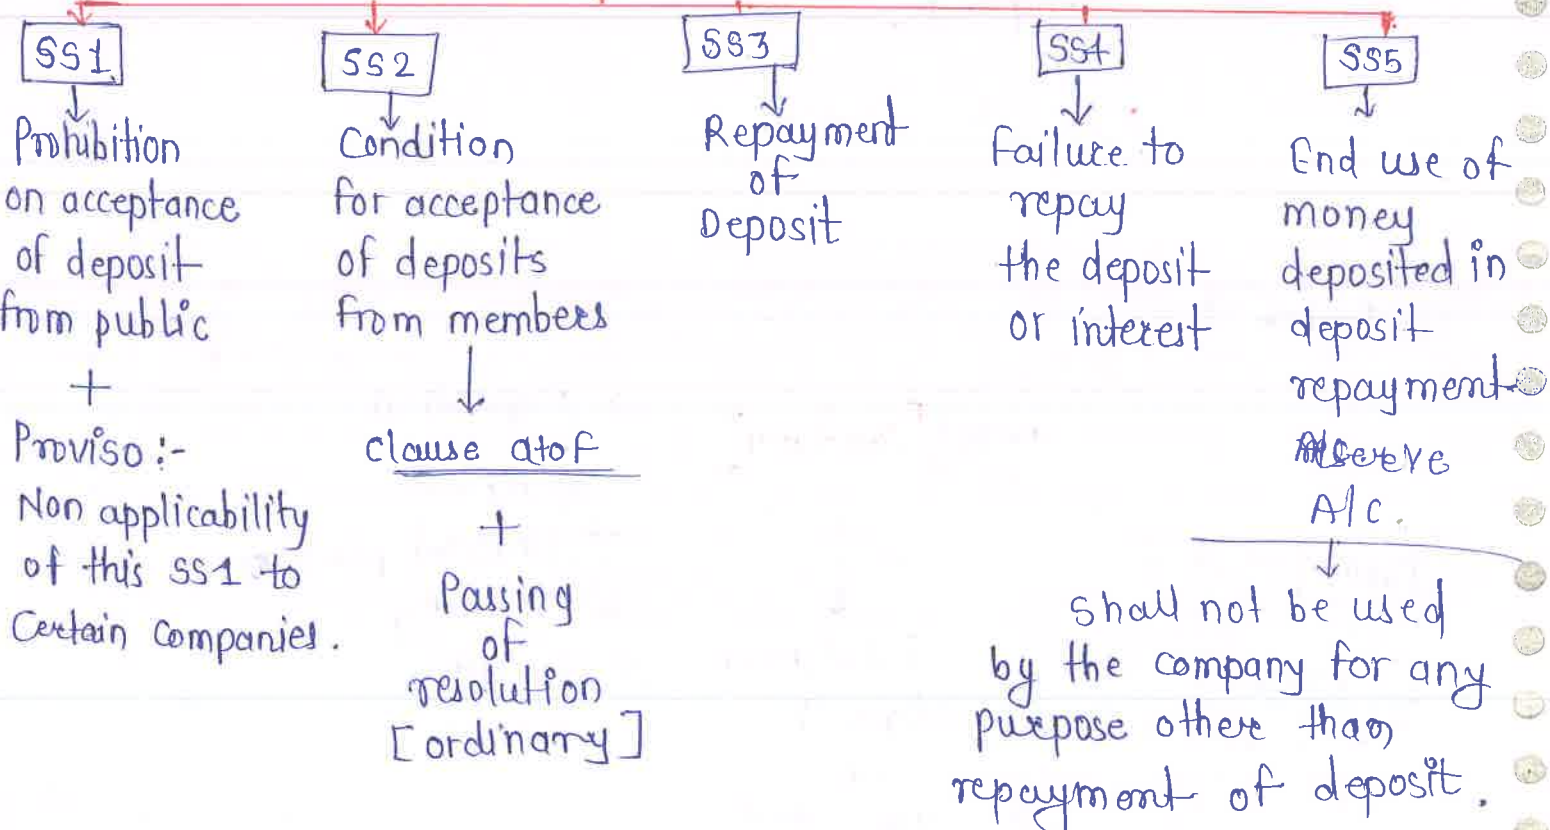 SS1
Prohibition
on acceptance
of deposit
from public
+
Proviso :-
Non applicability
of this SS1 to
Certain Companies.
SS2
Condition
for acceptance
of deposits
from members
clause a to f
+
Passing
of
resolution
[ordinary]
SS3
Repayment
of
Deposit
SS4
Failure to
repay
the deposit
or interest
SS5
End use of
money
deposited in
deposit
repayment
reserve
A/C.
shall not be used
by the company for any
purpose other than
repayment of deposit.